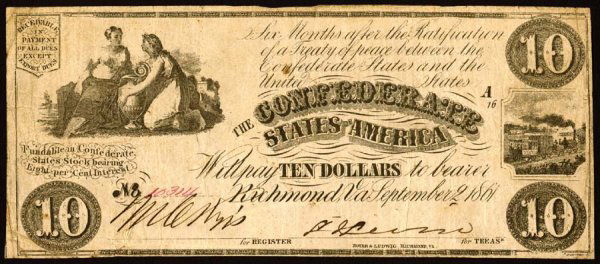 RECEIVABLE
IN
PAYMENT
OF ALL DUES
EXCEPT
EXPORT DUES
Six Months after the Ratification
of a Treaty of peace between the
Confederate States and the
United States
10
A
16
THE CONFEDERATE
STATES OF AMERICA
Fundable in Confederate
States Stock bearing
Eight per Cent Interest
Will pay TEN DOLLARS to bearer
Richmond, Va September 2 1861
No
10
10
for REGISTER
HOYER & LUDWIG, RICHMOND, VA.
for TREASR